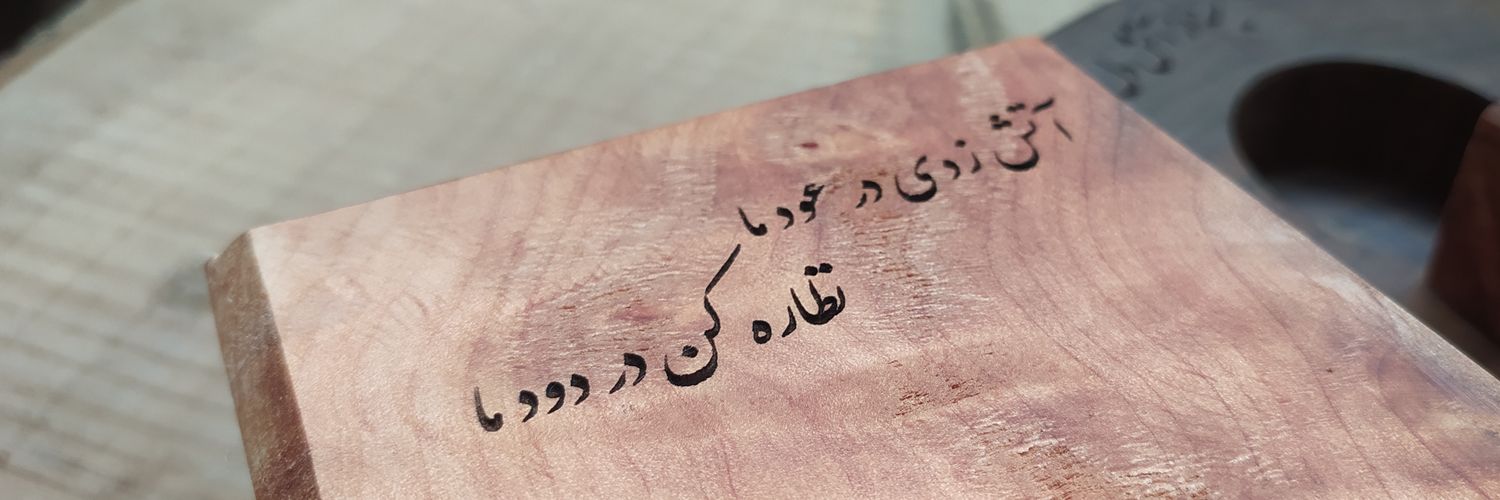 آتش زدی در عود ما
نظاره کن در دود ما